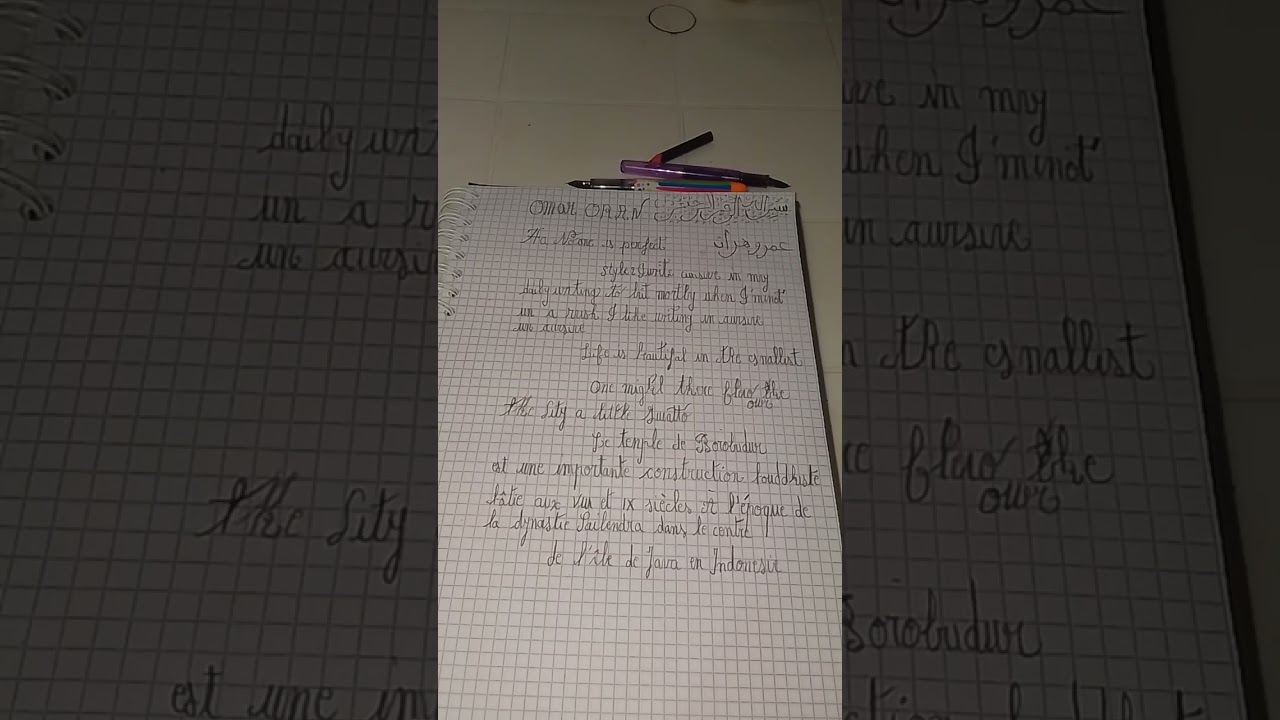 Omar ORAN بسم الله الرحمن الرحيم
No one is perfect عمر وهران
style I write cursive in my
daily writing to but mostly when I'minot
in a rush I like writing in cursive
in cursive
Life is beautiful in the smallest
One might there flao the
our
the City a
Le temple de Borobudur
est une importante construction bouddhiste
bâtie aux VIII et IX siècles à l'époque de
la dynastie Sailendra dans le centre
de l'île de Java en Indonesie